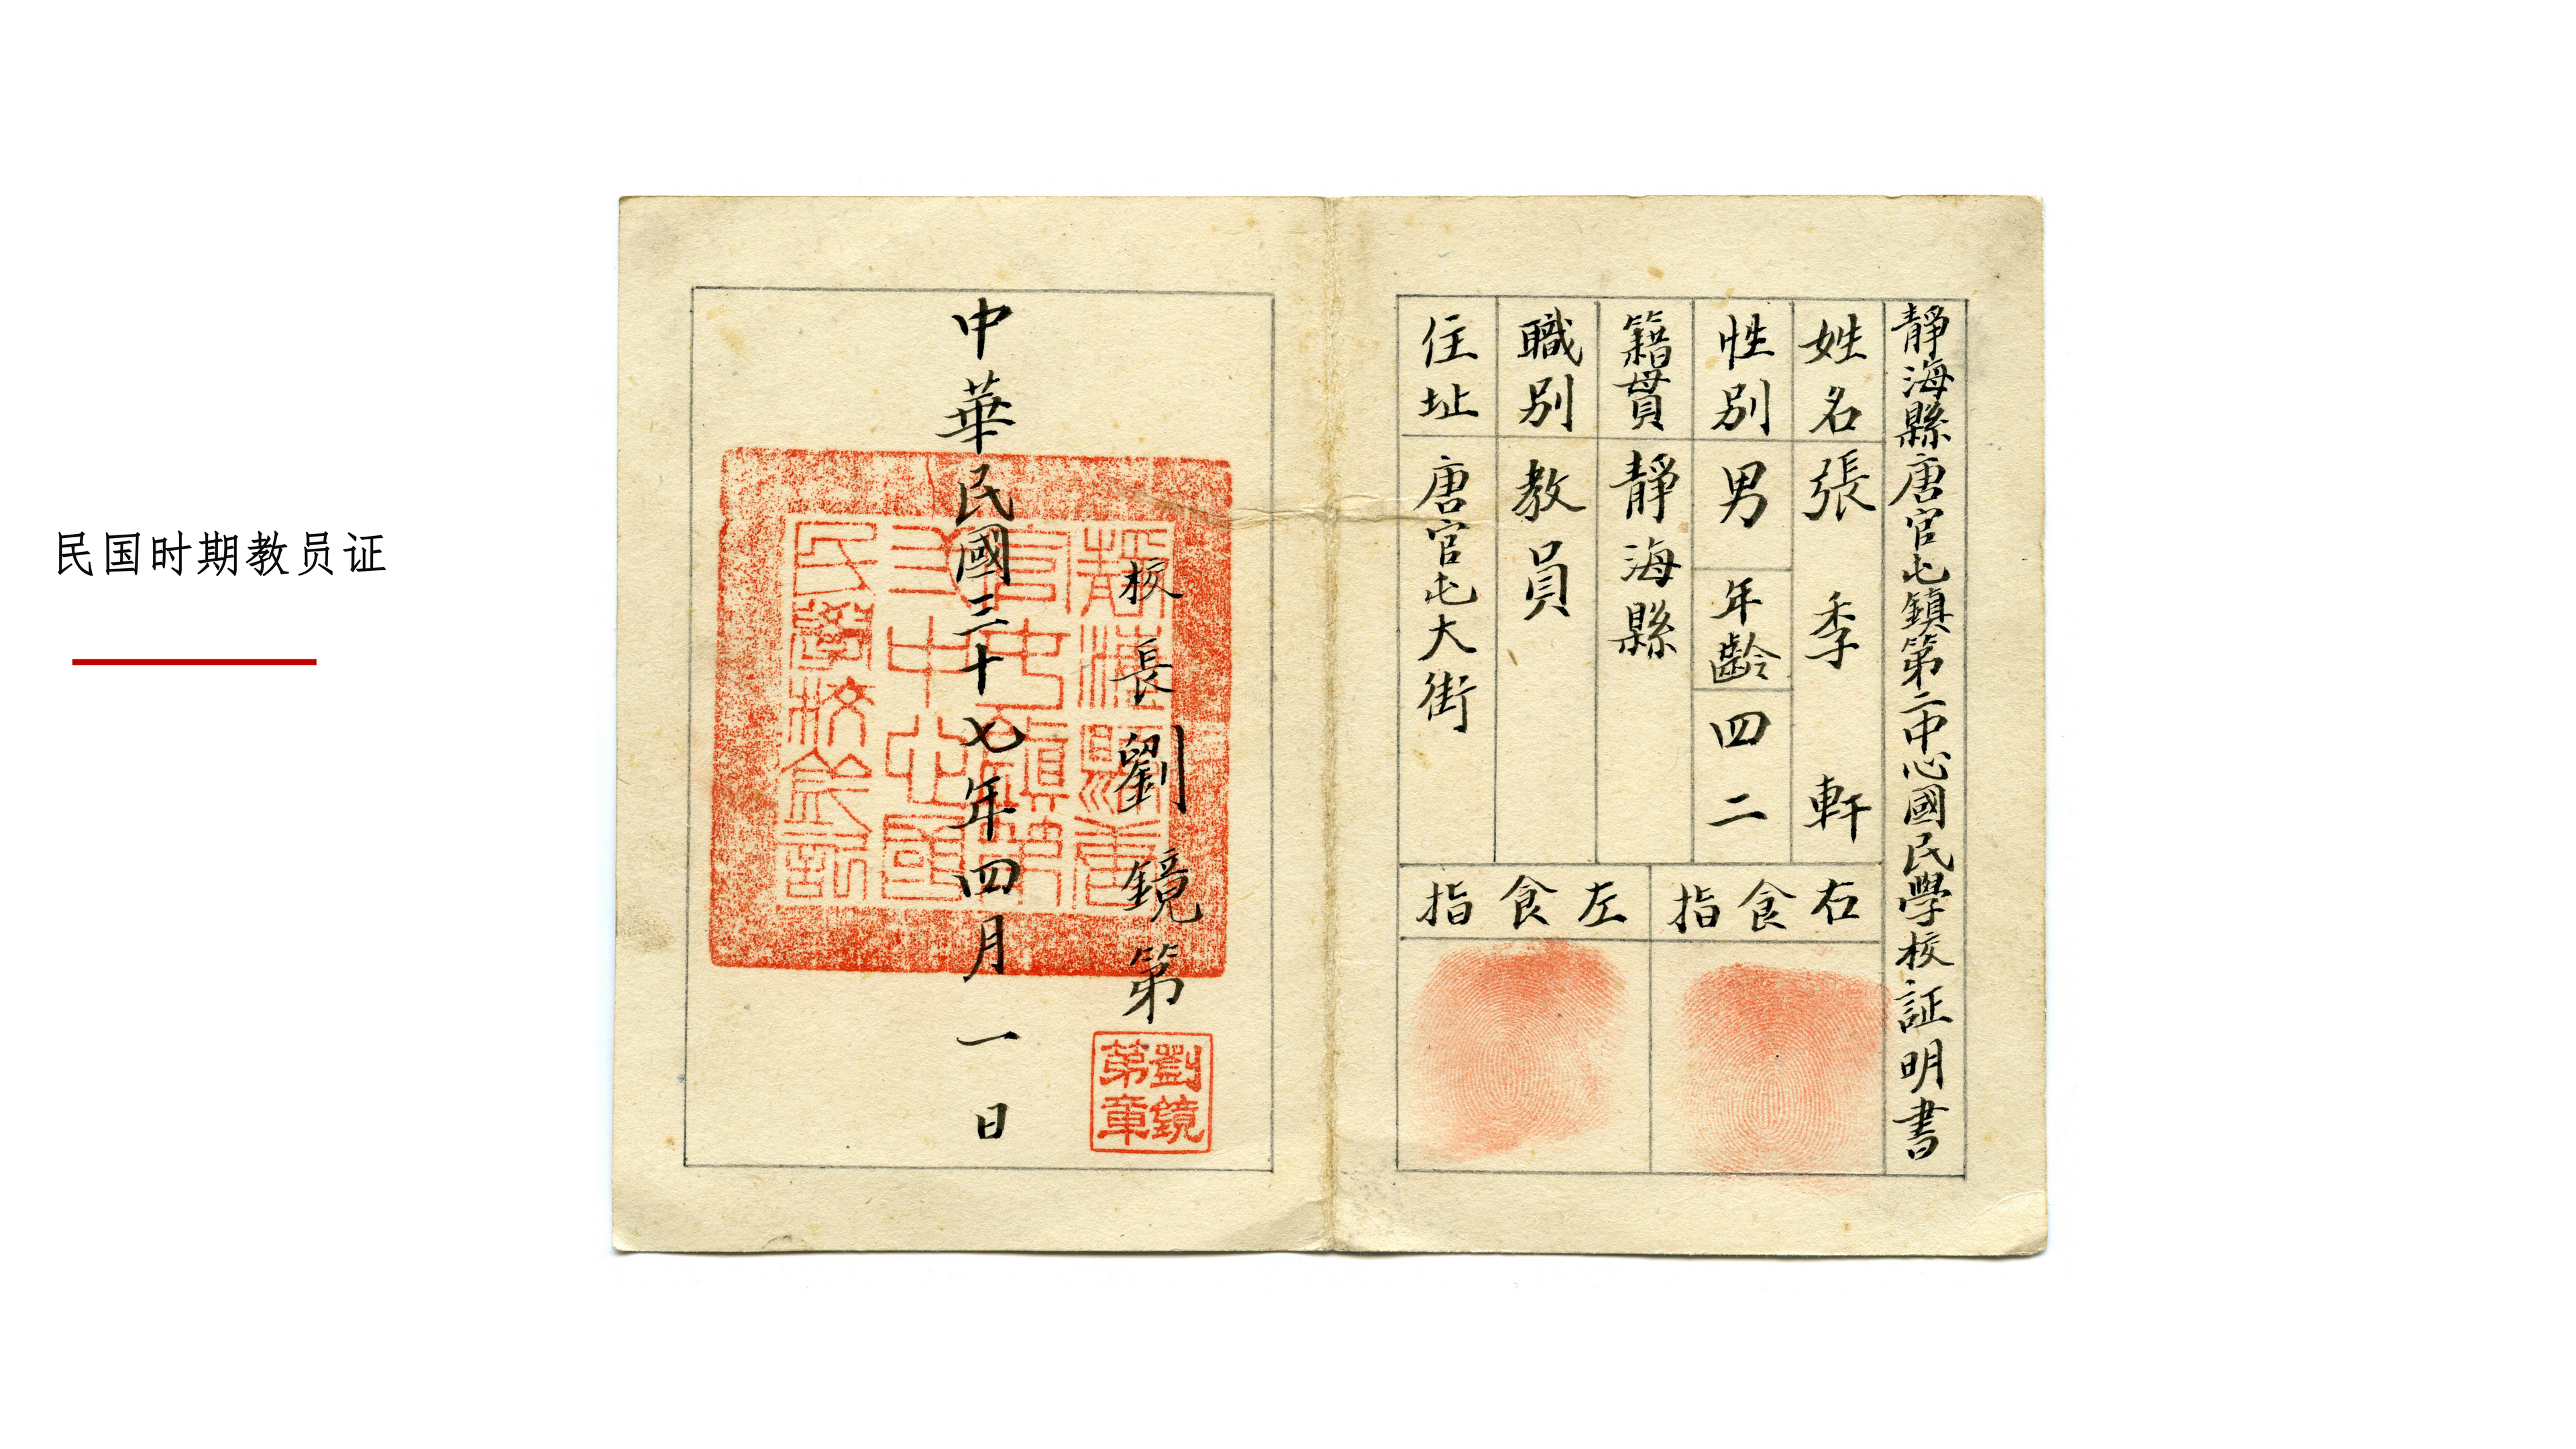 民国时期教员证
靜海縣唐官屯鎮第二中心國民學校証明書
姓名 張季軒
性別 男 年齡 四二
籍貫 靜海縣
職別 教員
住址 唐官屯大街
右食指
左食指
校長劉鏡第
劉鏡
第章
中華民國三十七年四月一日
靜海縣唐
官屯鎮第
中心國
民學校鈐記